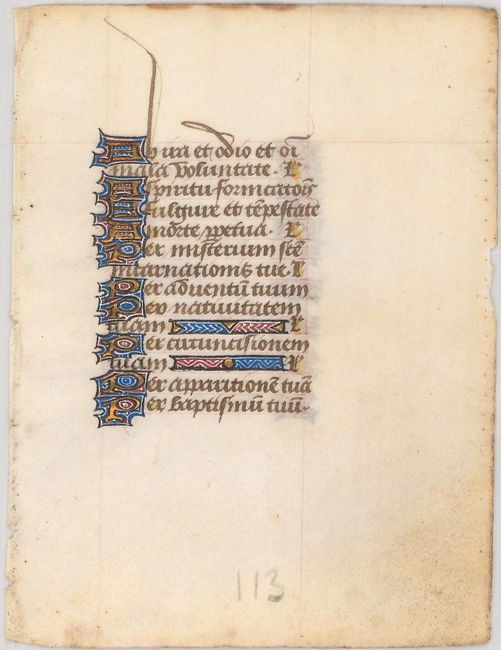 Ab ira et odio et oī
mala voluntate. L
A spiritu fornicatōis
A fulgure et tēpestate
A morte ppetua. L
Per misterium scē
incarnationis tue. L
Per adventum tuum
Per nativitatem
tuam L
Per circuncisionem
tuam L
Per apparitionē tuā
Per baptismū tuū.
113